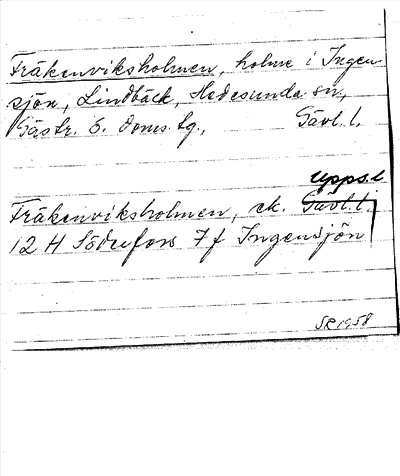 Fräkenviksholmen, holme i Ingen-
sjön, Lindbäck, Hedesunda sn,
Gästr. ö. doms.tg., Gävl. l.
Upps. l
Fräkenviksholmen, ek. Gävl. l.
12 H Söderfors 7 f Ingensjön
SR 1958